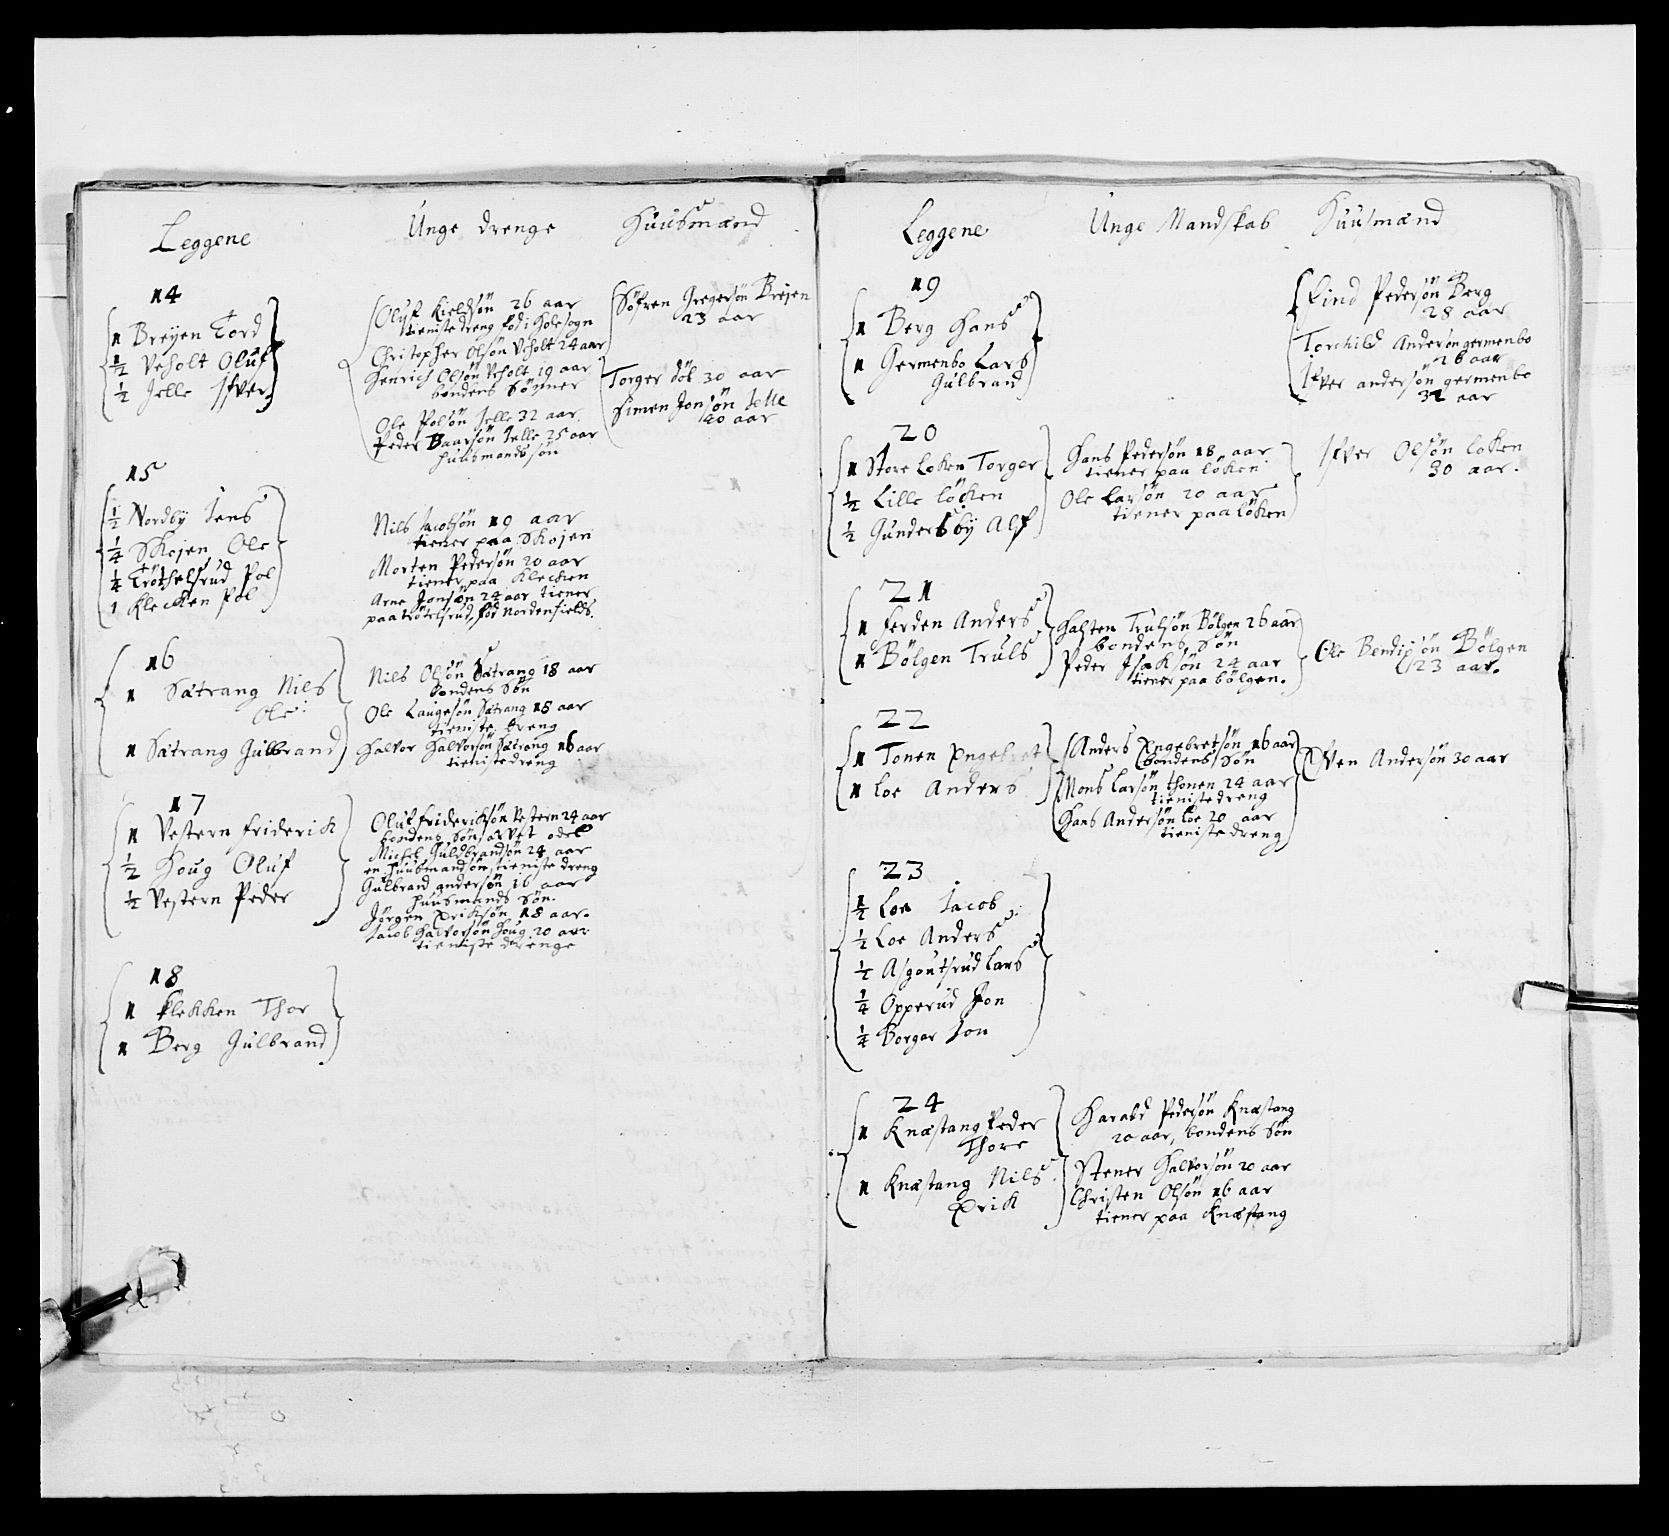 Leggene
Unge drenge
Huusmænd
14
1 Breyen Tord
½ Veholt Oluf
½ Jelle Ifver
Oluf Kieldsön 26 aar
tieniste dreng fød i Holesogn
Christopher Olsön Veholt 24 aar
Henrich Olsön Veholt 19 aar
bondens Sønner
Ole Polsön Jelle 32 aar
Peder Baarsön Jelle 25 aar
huusmands søn
Söfren Gregersön Breyen
23 aar
Torger döl 30 aar
Simen Jonsön Jelle
40 aar
15
½ Nordby Jens
¼ Skojen Ole
¼ Trötselsrud Pol
1 Klecken Pol
Nils Jacobsön 19 aar
tiener paa Skojen
Morten Pedersön 20 aar
tiener paa Klecken
Arne Jonsön 24 aar tiener
paa trötelsrud, fød Nordenfields.
16
1 Sætrang Nils
Ole
1 Sætrang Gulbrand
Nils Olsön Sætrang 18 aar
bondens Sön
Ole Laugesön Sætrang 15 aar
tieniste dreng
Halvor Halvorsön Sætrang 16 aar
tieniste dreng
17
1 Vestern friderik
½ Houg Oluf
½ Vestern Peder
Oluf frideriksön Vestern 24 aar
bondens Sön arvet odel
Michel Guldbrandsön 24 aar
en huusmandsön, tieniste dreng
Gulbrand andersön 16 aar
huusmands Søn.
Jörgen Eriksön 18 aar.
Jacob Halvorsön Houg 20 aar
tieniste drenge
18
1 flekken Thor
1 Berg Gulbrand
Leggene
Unge Mandskab
Huusmænd
19
1 Berg Hans
1 Germenbo Lars
Gulbrand
Find Pedersön Berg
28 aar
Torchild Andersön germenbo
26 aar
Ifver andersön germenbo
32 aar
20
1 Store Loken Torger
½ Lille löken
½ Gundersby Alf
Hans Pedersön 18 aar
tiener paa löken
Ole Larsön 20 aar
tiener paa löken
Ifver Olsön loken
30 aar.
21
1 ferden Anders
1 Bölgen Truls
Halsten Trulsön Bölgen 26 aar
bondens Søn
Peder Isaksön 24 aar
tiener paa bölgen.
Ole Bendixsön Bölgen
23 aar.
22
1 Tonen Engebret
1 Loe Anders
Anders Engebretsön 16 aar
bondens Søn
Mons Larsön thonen 24 aar
tieniste dreng
Hans Andersön loe 20 aar
tieniste dreng
Sven Andersön 30 aar
23
½ Loe Jacob
½ Loe Anders
½ Asgoutsrud Lars
¼ Opperud Jon
¼ Borger Jon
24
1 Knæstang Peder
Thore
1 Knæstang Nils
Erik
Harald Pedersön Knæstang
20 aar, bondens Søn
Stener Halvorsön 20 aar
Christen Olsön 16 aar
tiener paa Knæstang